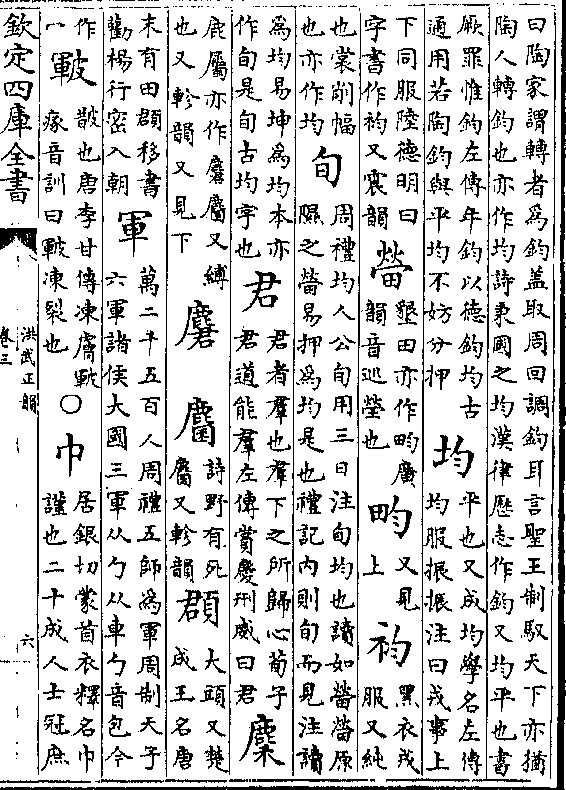 曰陶家謂轉者為鈞蓋取周回調鈞耳言聖王制馭天下亦猶
陶人轉鈞也亦作均詩秉國之均漢律歷志作鈞又均平也書
厥罪惟鈞左傳年鈞以德鈞均古
通用若陶鈞與平均不妨分押
均
平也又成均學名左傳
均服振振注曰戎事上
下同服陸德明曰
字書作袀又震韻
墾田亦作畇廣
韻音巡營也
畇
又見
上
袀
黑衣戎
服又純
也裳削幅
也亦作均
旬
周禮均人公旬用三日注旬均也讀如原
隰之易押為均是也禮記內則旬而見注讀
為均易坤為均本亦
作旬是旬古均字也
君
君者羣也羣下之所歸心荀子
君道能羣左傳賞慶刑威曰君
麇
鹿屬亦作麏麕又縛
也又軫韻又見下
麏
麕
詩野有死
麕又軫韻
頵
大頭又楚
成王名唐
末有田頵移書
勸楊行密入朝
軍
萬二千五百人周禮五師為軍周制天子
六軍諸侯大國三軍从勹从車勹音包今
作
一
皸
皵也唐李甘傳凍膚皸
瘃音訓曰皸凍裂也
○巾
居銀切蒙首衣釋名巾
謹也二十成人士冠庶
欽定四庫全書
洪武正韻
卷三
六